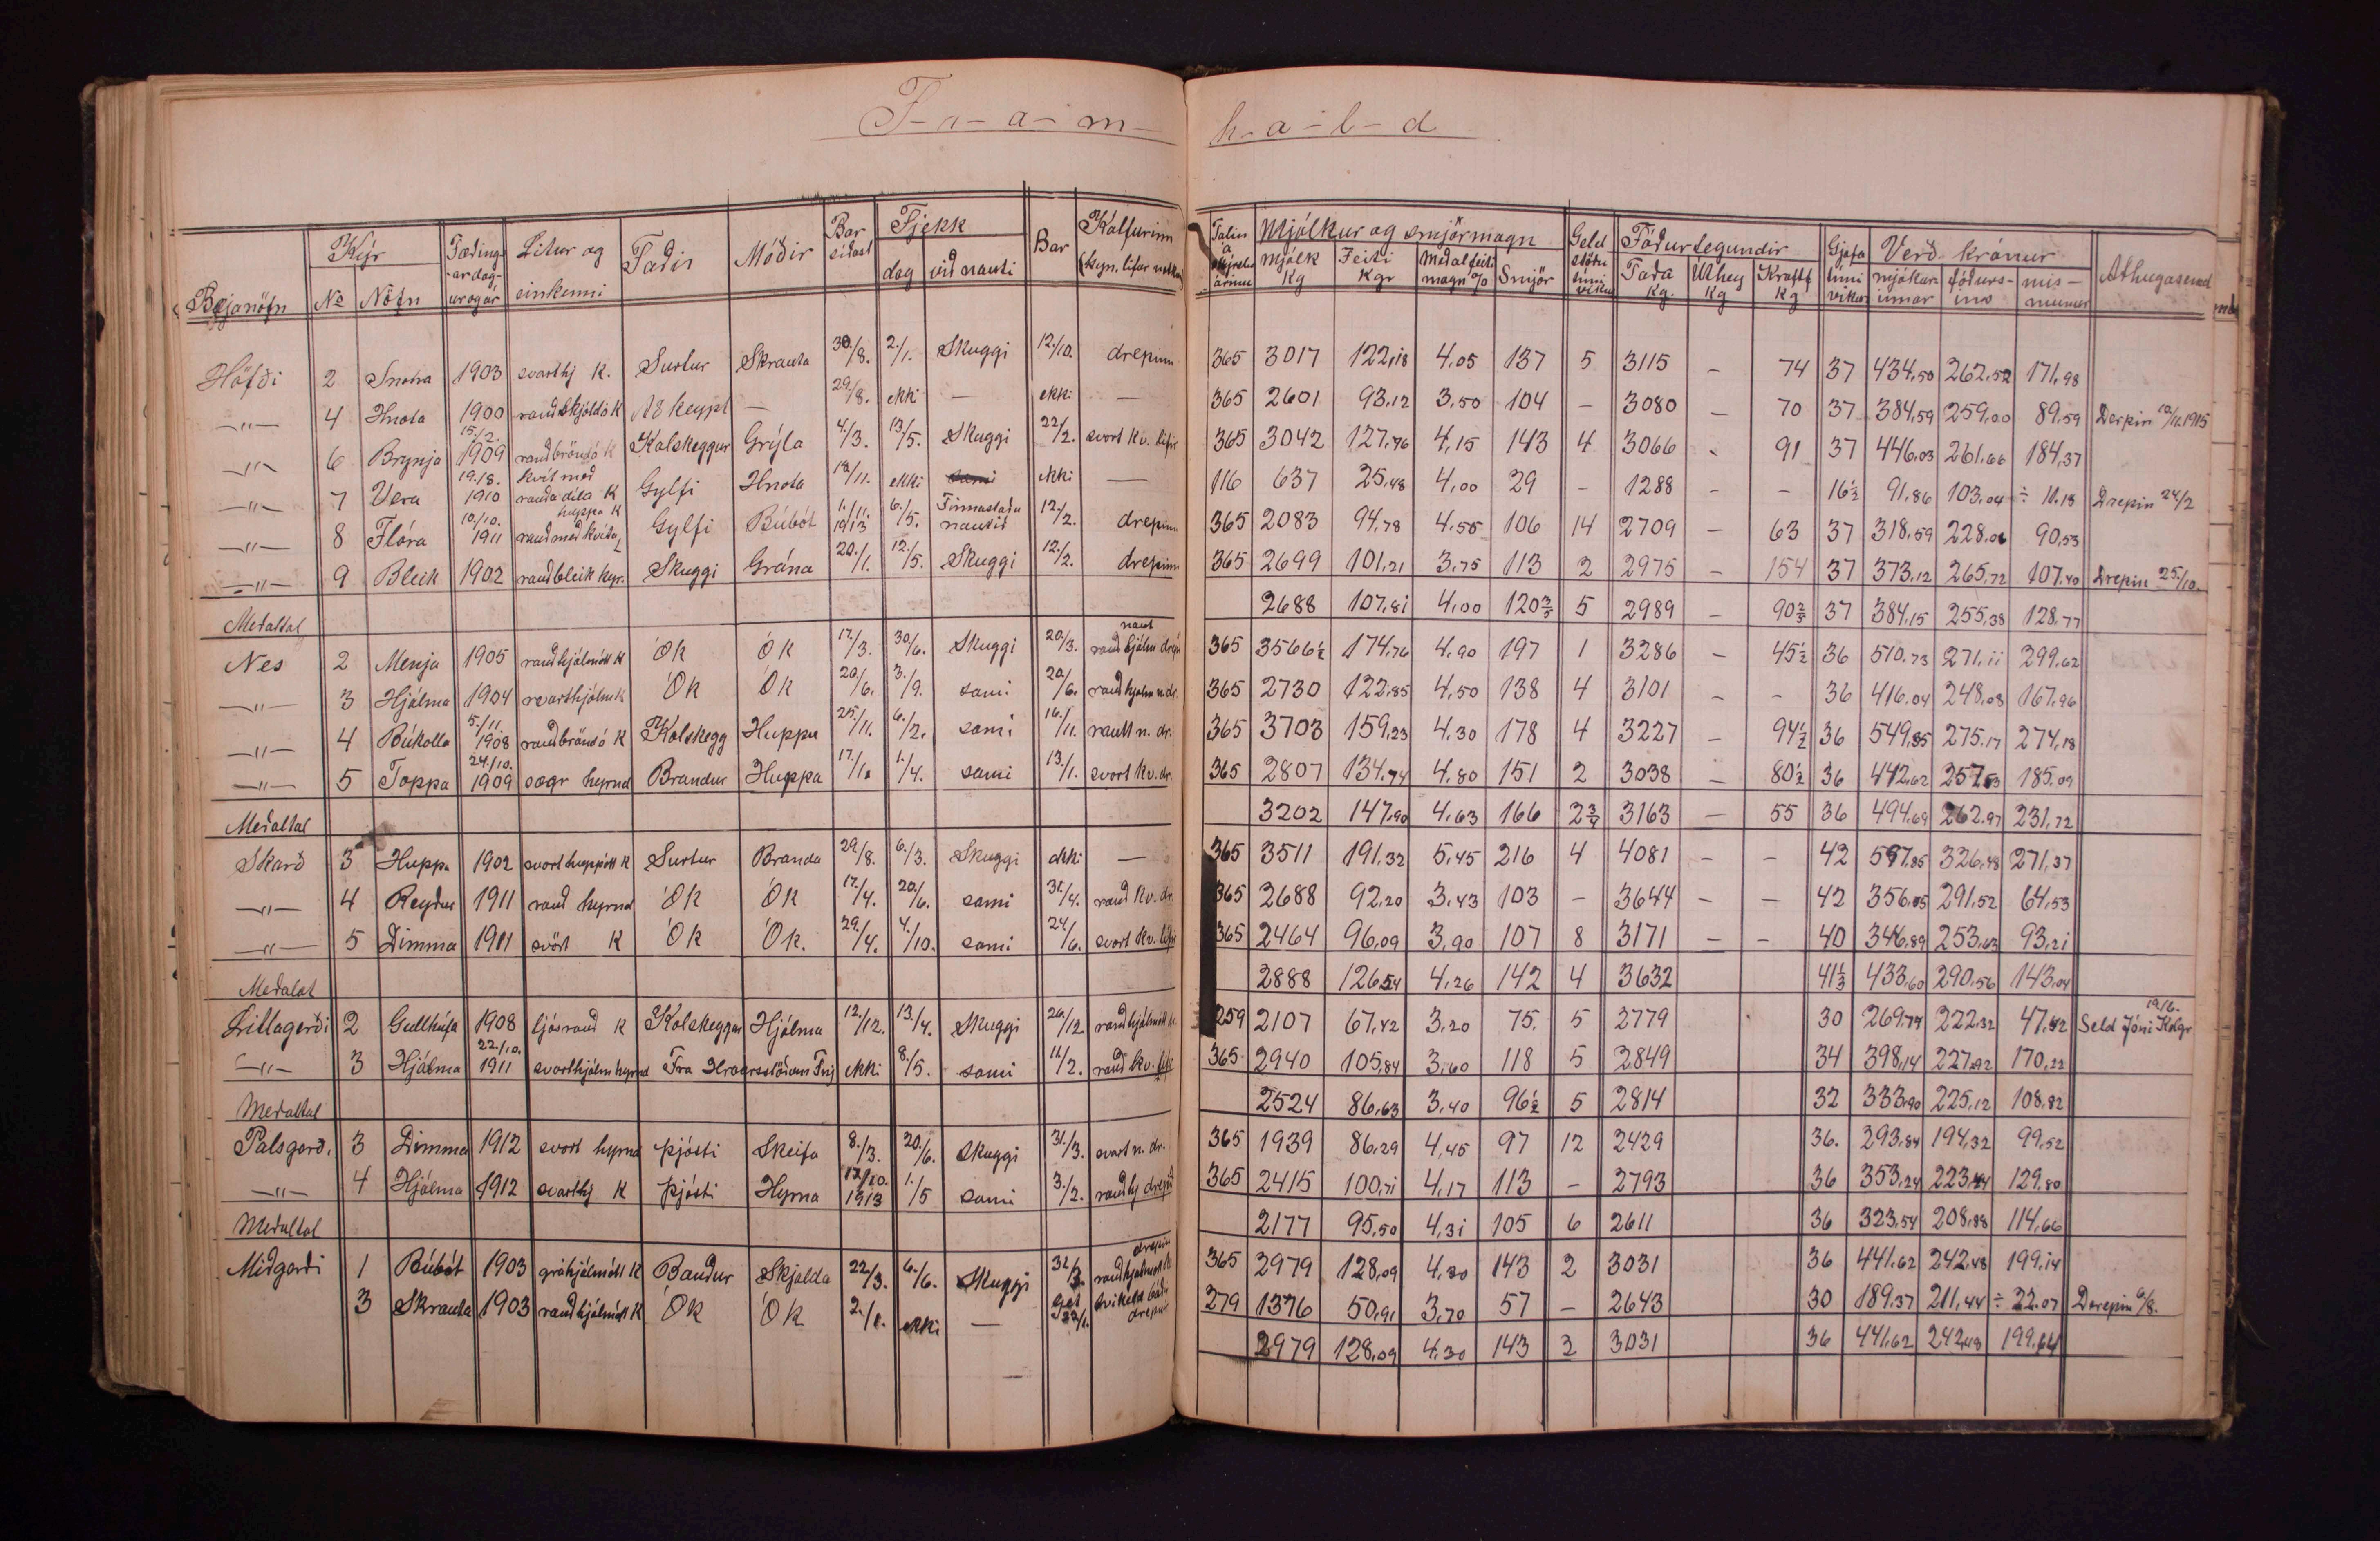 F-r-a-m-h-a-l-d
Bæjanöfn | Kýr № Nöfn | Fæðingardagur og ár | Litur og einkenni | Faðir | Móðir | Bar síðast | Fjekk dag við nauti | Bar | Kálfurinn | Talin á skýrslu árinu | Mjólkur og smjörmagn Mjólk Kg Feiti Kgr Meðalfeiti magn % Smjör | Geld stöðu tími vikur | Fóðurtegundir Taða Kg. Úthey Kg Kraftf Kg | Gjafa tími vikur | Verð krónur mjólkurinnar fóðursins mismunur | Athugasemd
Höfði 2 Snotra 1903 svarthj K. Surtur Skrauta 30./8. 2./1. Skuggi 12./10. drepinn 365 3017 122,18 4,05 137 5 3115 – 74 37 434,50 262,52 171,98
–„– 4 Hnota 1900 rauðskjöldó K Að keypt — 29./8. ekki — ekki — 365 2601 93,12 3,50 104 – 3080 – 70 37 384,59 259,00 89,59 Derpin 12/11.1915
–„– 6 Brynja 15./2. 1909 rauðbröndó K Kolskeggur Grýla 4./3. 13./5. Skuggi 22/2. svort kv. lifir 365 3042 127,76 4,15 143 4 3066 - 91 37 446,03 261,66 184,37
–„– 7 Vera 19./8. 1910 hvít með rauða díla K Gylfi Hnota 18/11. ekki sami ekki — 116 637 25,48 4,00 29 – 1288 – – 16½ 91,86 103,04 ÷ 11.18 Drepin 24/2
–„– 8 Flóra 10./10. 1911 rauð með hvíta huppa K Gylfi Búbót 1./11. 1913 6./5. Finnastaða nautið 12./2. drepinn 365 2083 94,78 4.55 106 14 2709 – 63 37 318,59 228.06 90,53
–„– 9 Bleik 1902 rauðbleik kyr. Skuggi Grána 20./1. 12./5. Skuggi 12./2. drepinn 365 2699 101,21 3,75 113 2 2975 – 154 37 373,12 265,72 107,40 Drepin 25./10.
Meðaltal 2688 107,81 4,00 120 3/5 5 2989 – 90 2/5 37 384,15 255,38 128,77
Nes 2 Menja 1905 rauðhjálmótt K Ók Ók 17./3. 30/6. Skuggi 20/3. rauð hjálm naut drep 365 3566½ 174,76 4,90 197 1 3286 – 45½ 36 510.73 271,11 299,62
–„– 3 Hjálma 1904 svarthjálm K Ók Ók 20/6. 3./9. sami 20/6. rauðhjálm n.dr. 365 2730 122,85 4,50 138 4 3101 – – 36 416,04 248,08 167,96
–„– 4 Búkolla 5./11. 1908 rauðbröndó K Kolskegg Huppa 25./11. 6./2. sami 16./11. rautt n. dr. 365 3703 159,23 4,30 178 4 3227 – 94½ 36 549,35 275,17 274,18
–„– 5 Toppa 24./10. 1909 sægr hyrnd Brandur Huppa 17./1. 1./4. sami 13./1. svort kv. dr. 365 2807 134,74 4,80 151 2 3038 – 80½ 36 442,62 257,53 185,09
Meðaltal 3202 147,90 4,63 166 2¾ 3163 – 55 36 494,69 262,97 231,72
Skarð 3 Huppa 1902 svort huppótt K Surtur Branda 29./8. 6./3. Skuggi ekki — 365 3511 191,32 5,45 216 4 4081 – – 42 597,85 326,48 271,37
–„– 4 Reyður 1911 rauð hyrnd Ók Ók 17./4. 20./6. sami 31./4. rauð kv. dr. 365 2688 92,20 3,43 103 – 3644 – – 42 356,05 291,52 64,53
–„– 5 Dimma 1911 svört K Ók Ók. 29./4. 4./10. sami 24/6. svort kv. lifir 365 2464 96,09 3,90 107 8 3171 – – 40 346,89 253,63 93,21
Meðalat 2888 126,54 4,26 142 4 3632 41⅓ 433,60 290,56 143,04
Litlagerði 2 Gullhúfa 1908 ljósrauð K Kolskeggur Hjálma 12./12. 13./4. Skuggi 26/12. rauðhjálmótt 259 2107 67,42 3,20 75. 5 2779 30 269,74 222,32 47,42 Seld Jóni Kolgr 19./6.
–„– 3 Hjálma 22./10. 1911 svarthjálm hyrnd Fra ekki 8./5. sami 11./2. rauð kv. lifir 365 2940 105,84 3,60 118 5 2849 34 398,14 227,92 170,22
Meðaltal 2524 86,63 3,40 96½ 5 2814 32 333,90 225,12 108,82
Pálsgerð. 3 Dimma 1912 svort hyrnd þjósti Skeifa 8./3. 20./6. Skuggi 31./3. svart n. dr. 365 1939 86,29 4,45 97 12 2429 36. 293,84 194,32 99,52
–„– 4 Hjálma 1912 svarthj K þjósti Hyrna 17./10. 1913 1./5 sami 3./2. rauðhj drepið 365 2415 100,71 4,17 113 – 2793 36 353,24 223,44 129,80
Meðaltal 2177 95,50 4,31 105 6 2611 36 323,54 208,88 114,66
Miðgerði 1 Búbót 1903 gráhjálmótt K Bauður Skjalda 22/3. 6./6. Skuggi 31/3. rauðhjálmótt K drepin 365 2979 128,09 4,30 143 2 3031 36 441,62 242,48 199,14
3 Skrauta 1903 rauðhjálmótt K Ók Ók 2./1. ekki — 22/1. tvíkelt báðir drepnir 279 1376 50,91 3,70 57 – 2643 30 189,37 211,44 ÷ 22.07 Derepin 6/8.
2979 128,09 4,30 143 2 3031 36 441,62 242,48 199,64